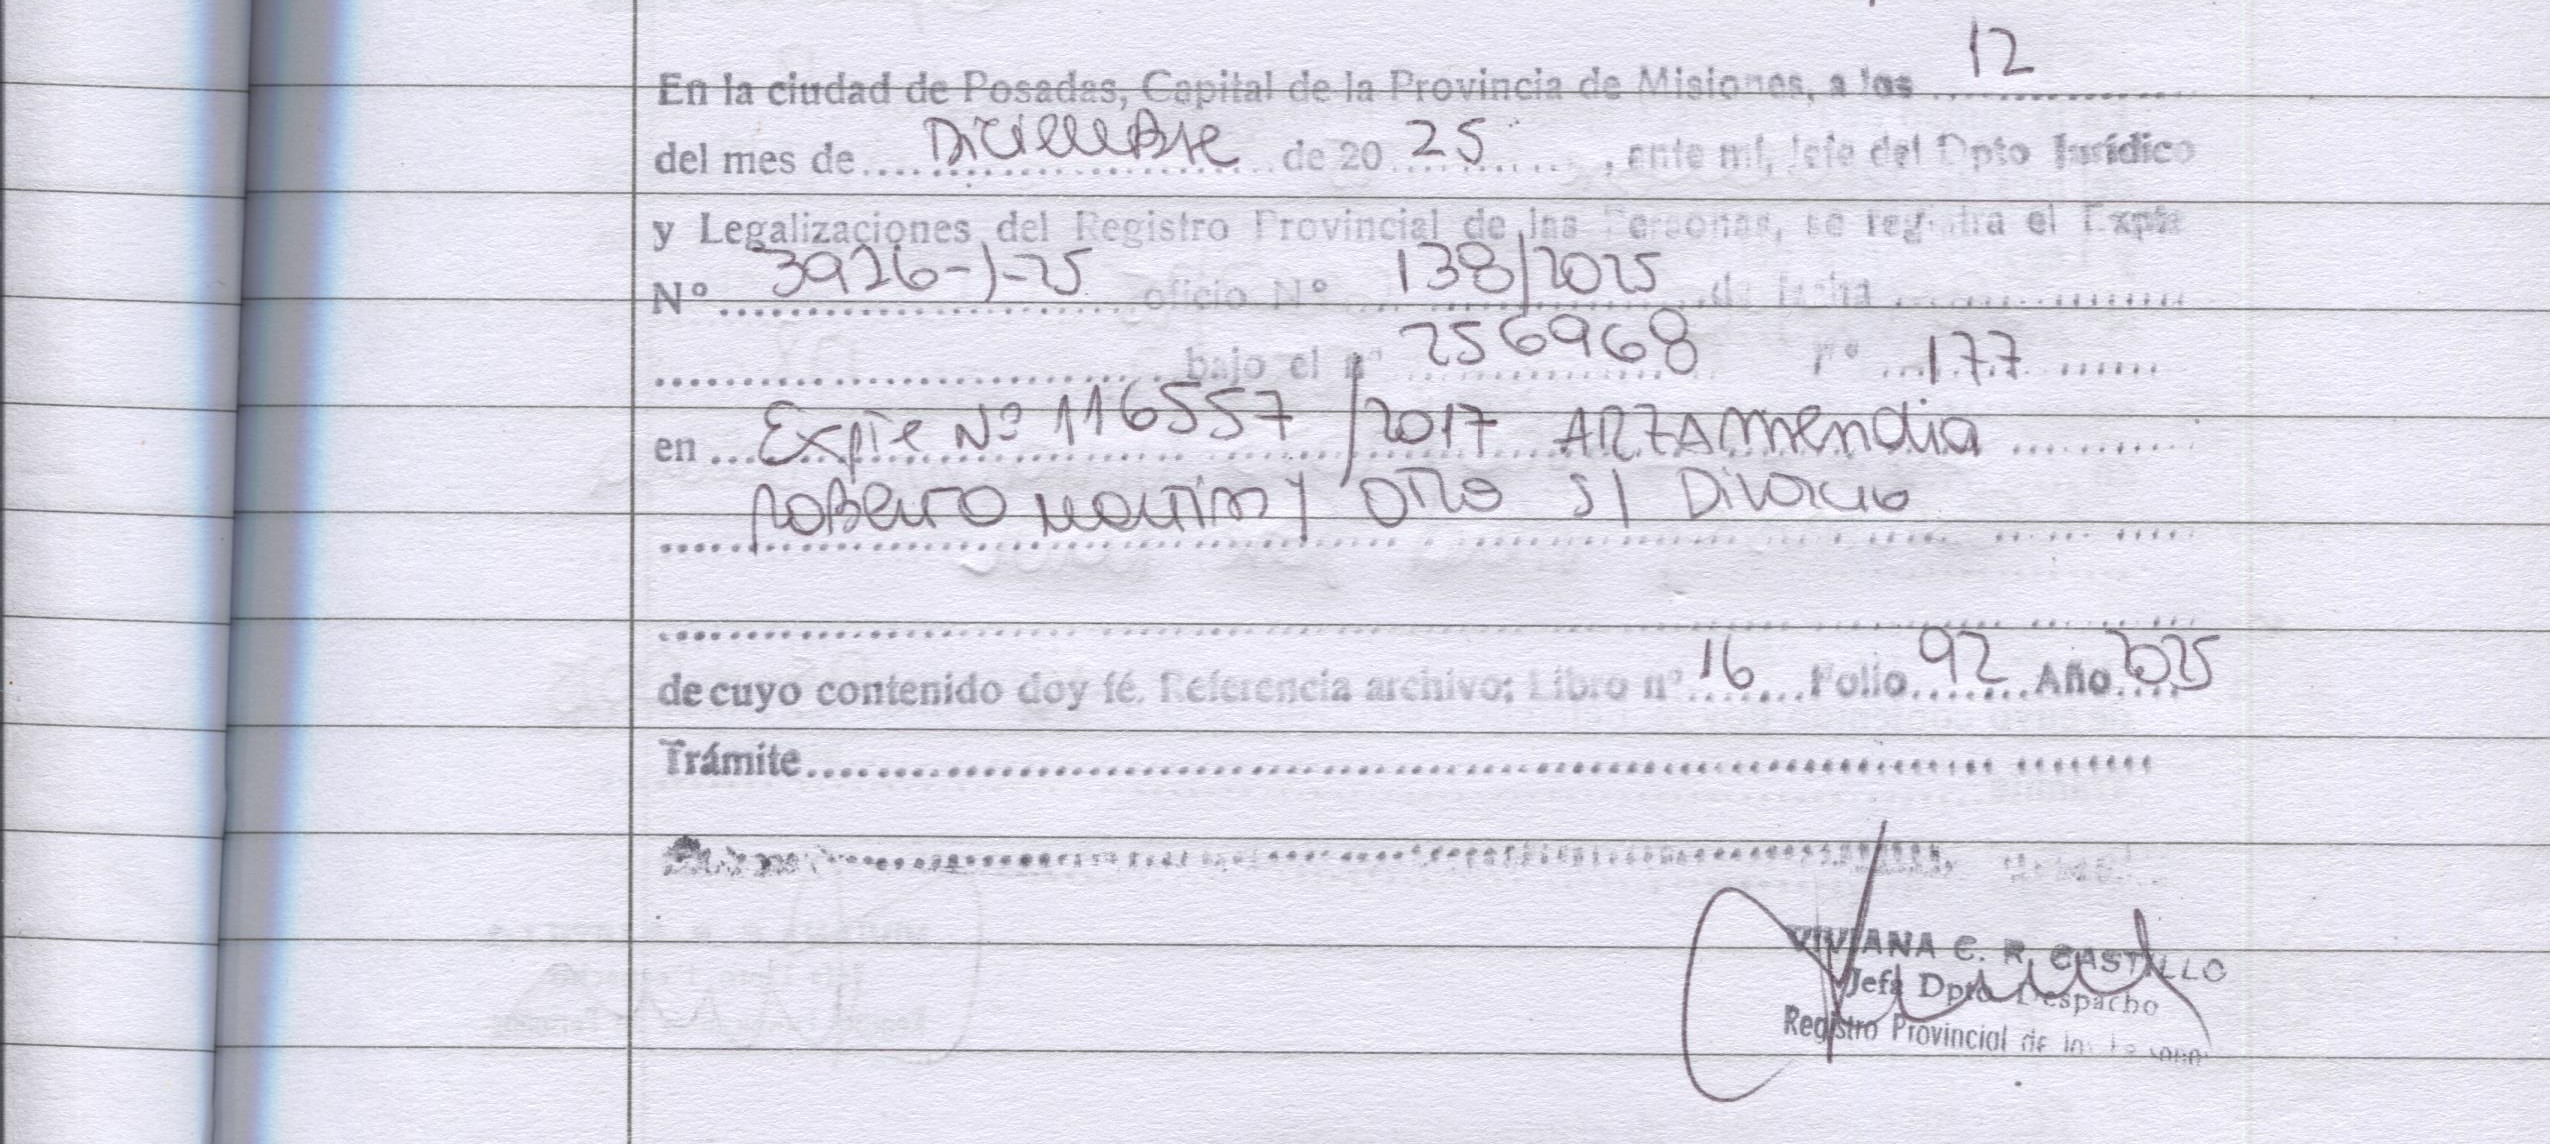 En la ciudad de Posadas, Capital de la Provincia de Misiones, a los 12
del mes de Diciembre de 20 25, ante mí, Jefe del Dpto Jurídico
y Legalizaciones del Registro Provincial de las Personas, se registra el Expte
Nº 3926-J-25 oficio Nº 138/2025 de fecha
bajo el nº 256968 Fº 177
en Expte Nº 116557/2017 ARZAmendia
Roberto Martin y otro s/ Divorcio
de cuyo contenido doy fé. Referencia archivo: Libro nº 16 Folio 92 Año 2025
Trámite
VIVIANA C. R. CASTILLO
Jefa Dpto Despacho
Registro Provincial de las Personas